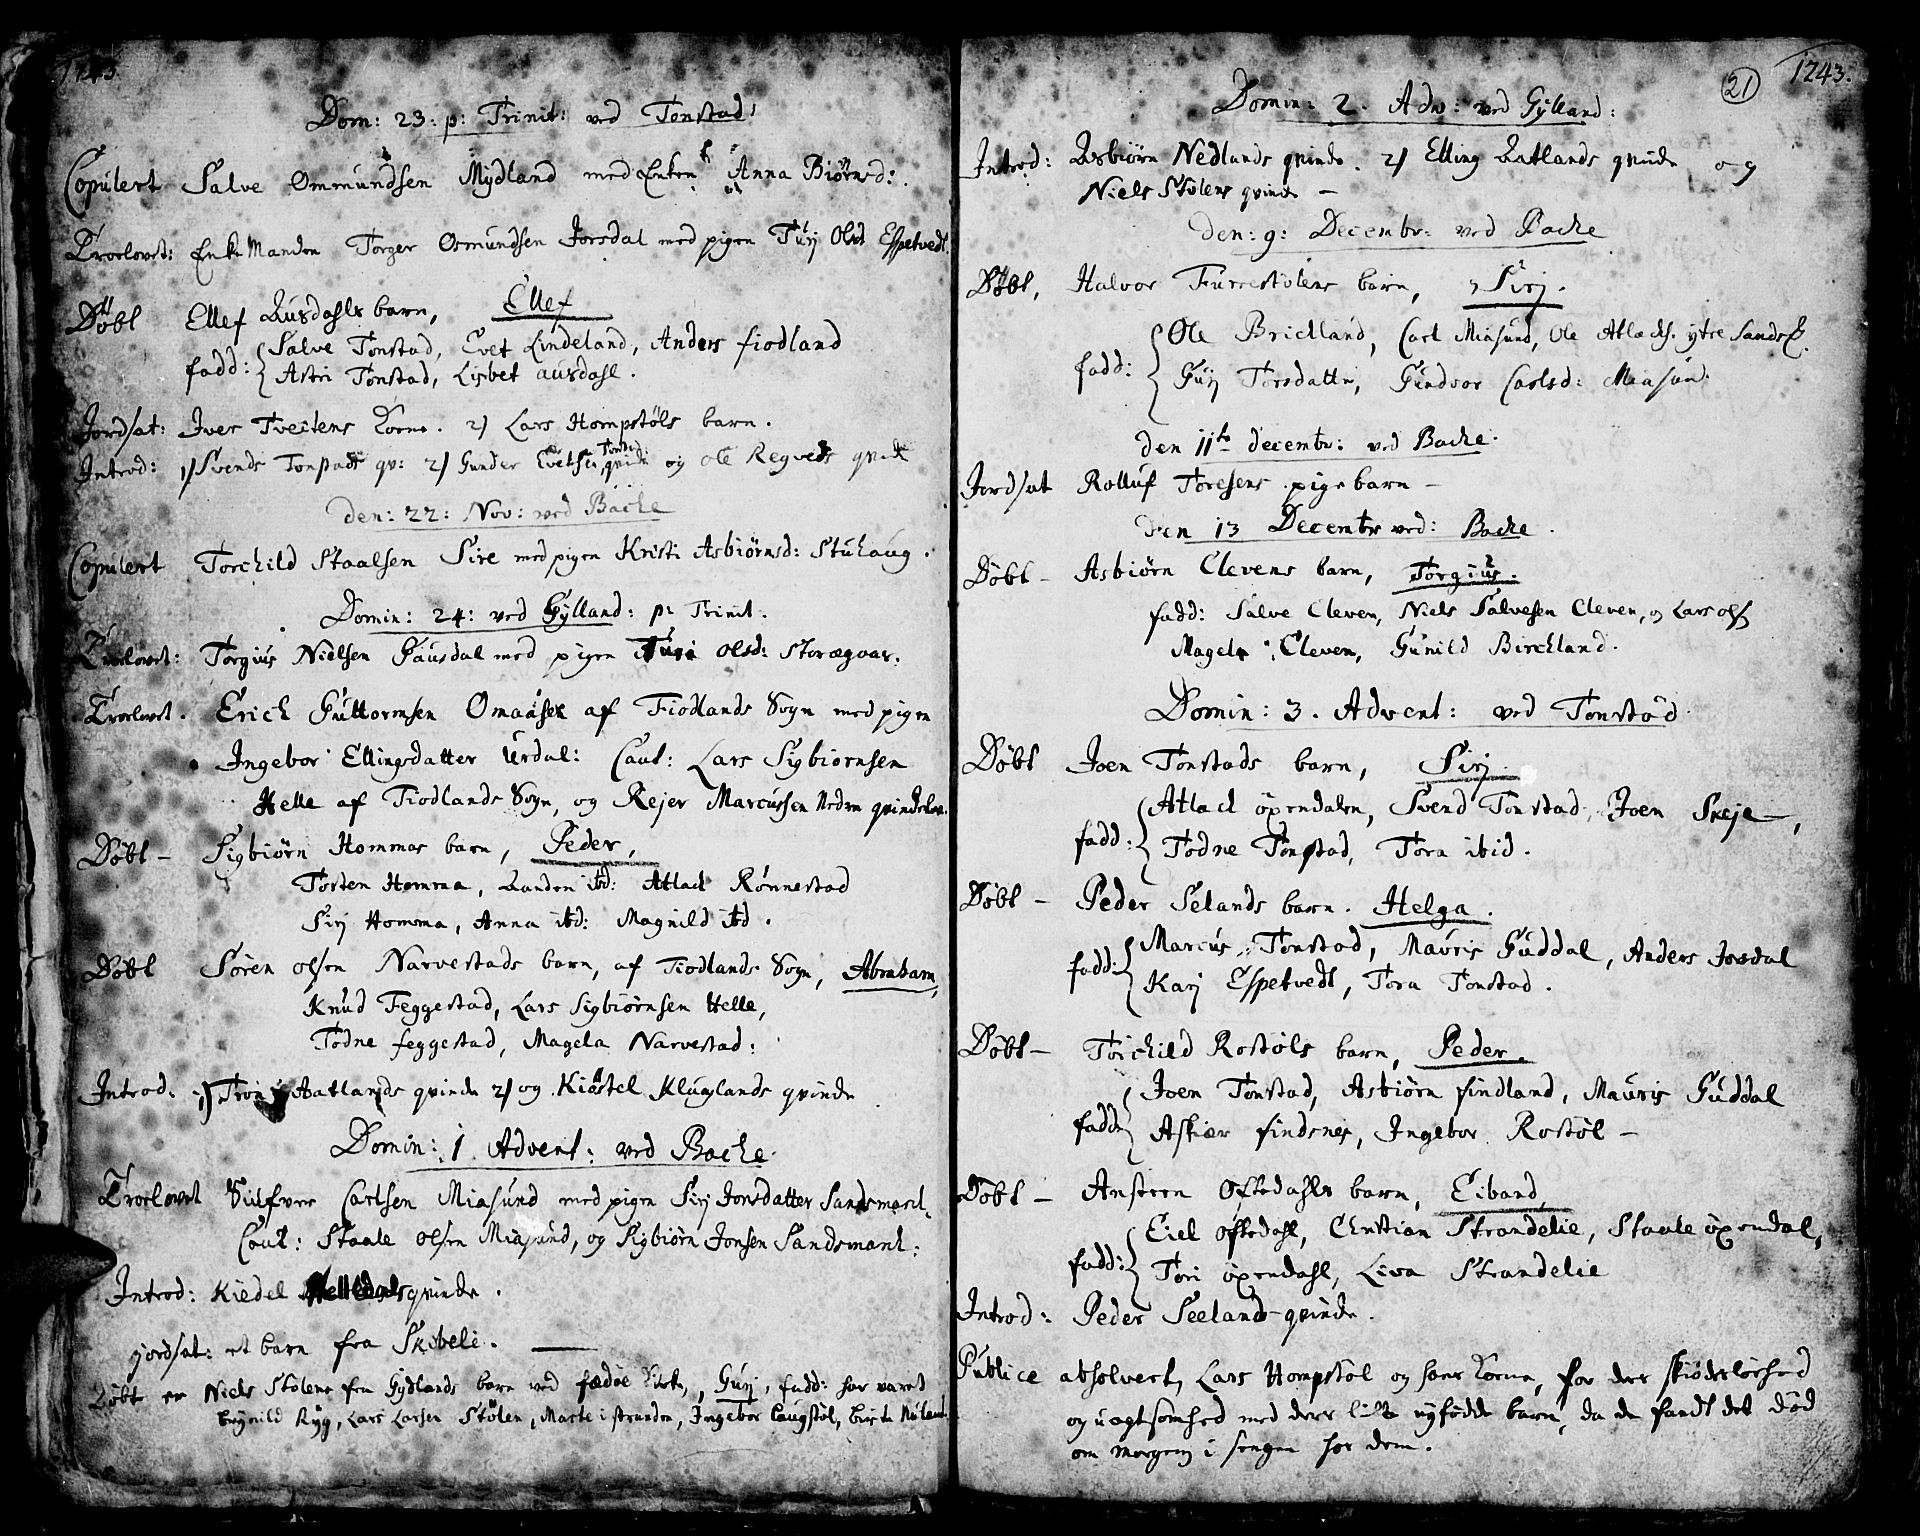 1743
Dom: 23. p: Trinit: ved Tonstad:
Copulert Salve Ommundsen Mydland med Enken Anna Biörnsd:
Troelovet: Enke Manden Torger Osmundsen Josdal med pigen Turj Olsd Espetvedt.
Döbt Ellef Ausdahls barn, Ellef
fadd: Salve Tonstad, Evet Lindeland, Anders fiodland
Astri Tonstad, Lisbet ausdahl.
Jordsat: Iver Tveitens Kone. 2) Lars Hompstöls barn.
Introd: 1) Svends Tonstads qv: 2) Gunder Evetsen Tonst: qvinde og Ole Regveds qvinde
den: 22: Nov: ved Backe
Copulert Torchild Staalsen Sire med pigen Kristi Asbiörnsd: Stuhaug.
Domin: 24: ved Gylland: p: Trinit.
Troelovet: Torgius Nielsen Gausdal med pigen Turi Olsd: Storægvar.
Troelovet. Erich Guttormsen Omaaser af Fiodlands Sogn med pigen
Ingebor Ellingsdatter Urdal: Caut: Lars Sigbiornsen
Helle af Fiodlands Sogn, og Rejer Marcussen Nedre
Döbt – Sigbiörn Hommas barn, Peder,
Tosten Homma, ibd: Atlach Rönnestad
Sirj Homma, Anna ibd: Magnild ibd.
Döbt Sören olsen Narvestads barn, af Fiodlands Sogn, Abraham,
Knud Feggestad, Lars Sigbiörnsen Helle,
Todne feggestad, Magela Narvestad:
Introd: 1) Aatlands qvinde 2) og Kiöstel Kluglands qvinde
Domin: 1 Advent: ved Backe.
Troelovet Sulfver Carlsen Miasund med pigen Sirj Jonsdatter Sandsmark,
Caut: Staale olsen Miasund, og Sigbiörn Jonsen Sandsmark:
Introd: Kiedel qvinde.
jordsat: et barn fra Skibeli.
Döbt er Niels Stölens fra Gydlands barn ved fædöe Kirke, Gurj, fadd: har varet
Brynild Ryg, Lars Larsen Stölen, Marte i stranden, Ingebor Haugstöl, Berte
21
1743.
Domin: 2. Adv: ved Gylland:
Introd: Asbiörn Nedlands qvinde. 2) Elling Aatlands qvinde og
Niels Stölens qvinde –
den: 9: Decembr: ved Backe
Döbt, Halvor Furrestölens barn, Sirj.
fadd: Ole Brickland, Carl Miasund, Ole Atlachs. ytre Sandsm.
Gurj Torsdatter, Gundvor Carlsd: Miasund.
den 11te decembr: ved Backe.
Jordsat Rolluf Toresens pigebarn –
den 13 Decembr ved: Backe.
Döbt – Asbiörn Clevens barn, Torgius.
fadd: Salve Cleven, Niels Salvesen Cleven, og Lars ols
Magela Cleven, Gunild Birckland.
Domin: 3. Advent: ved Tonstad
Döbt Joen Tonstads barn, Sirj.
fadd: Atlach öxendalen, Svend Tonstad, Joen Skeje –,
Todne Tonstad, Tora ibid.
Döbt – Peder Selands barn. Helga.
fadd: Marcus Tonstad, Mauris Guddal, Anders Josdal
Karj Espetvedt, Tora Tonstad.
Döbt – Torchild Rostöls barn, Peder.
fadd: Joen Tonstad, Asbiörn findland, Mauris Guddal
Askier findsnes, Ingebor Rostöl –
Döbt – Ansteen Oftedahls barn, Eivand,
fadd: Eiel Oftedahl, Christian Strandelie, Staale öxendal,
Tori öxendahl, Liva Strandelie
Introd: Peder Seeland-qvinde.
Publice absolvert, Lars Hompstöl og hans Kone, for der skiödeslöshed
og uagtsomhed med deres lille nyfödde barn, da de fandt det död
om morgen i sengen hos dem.